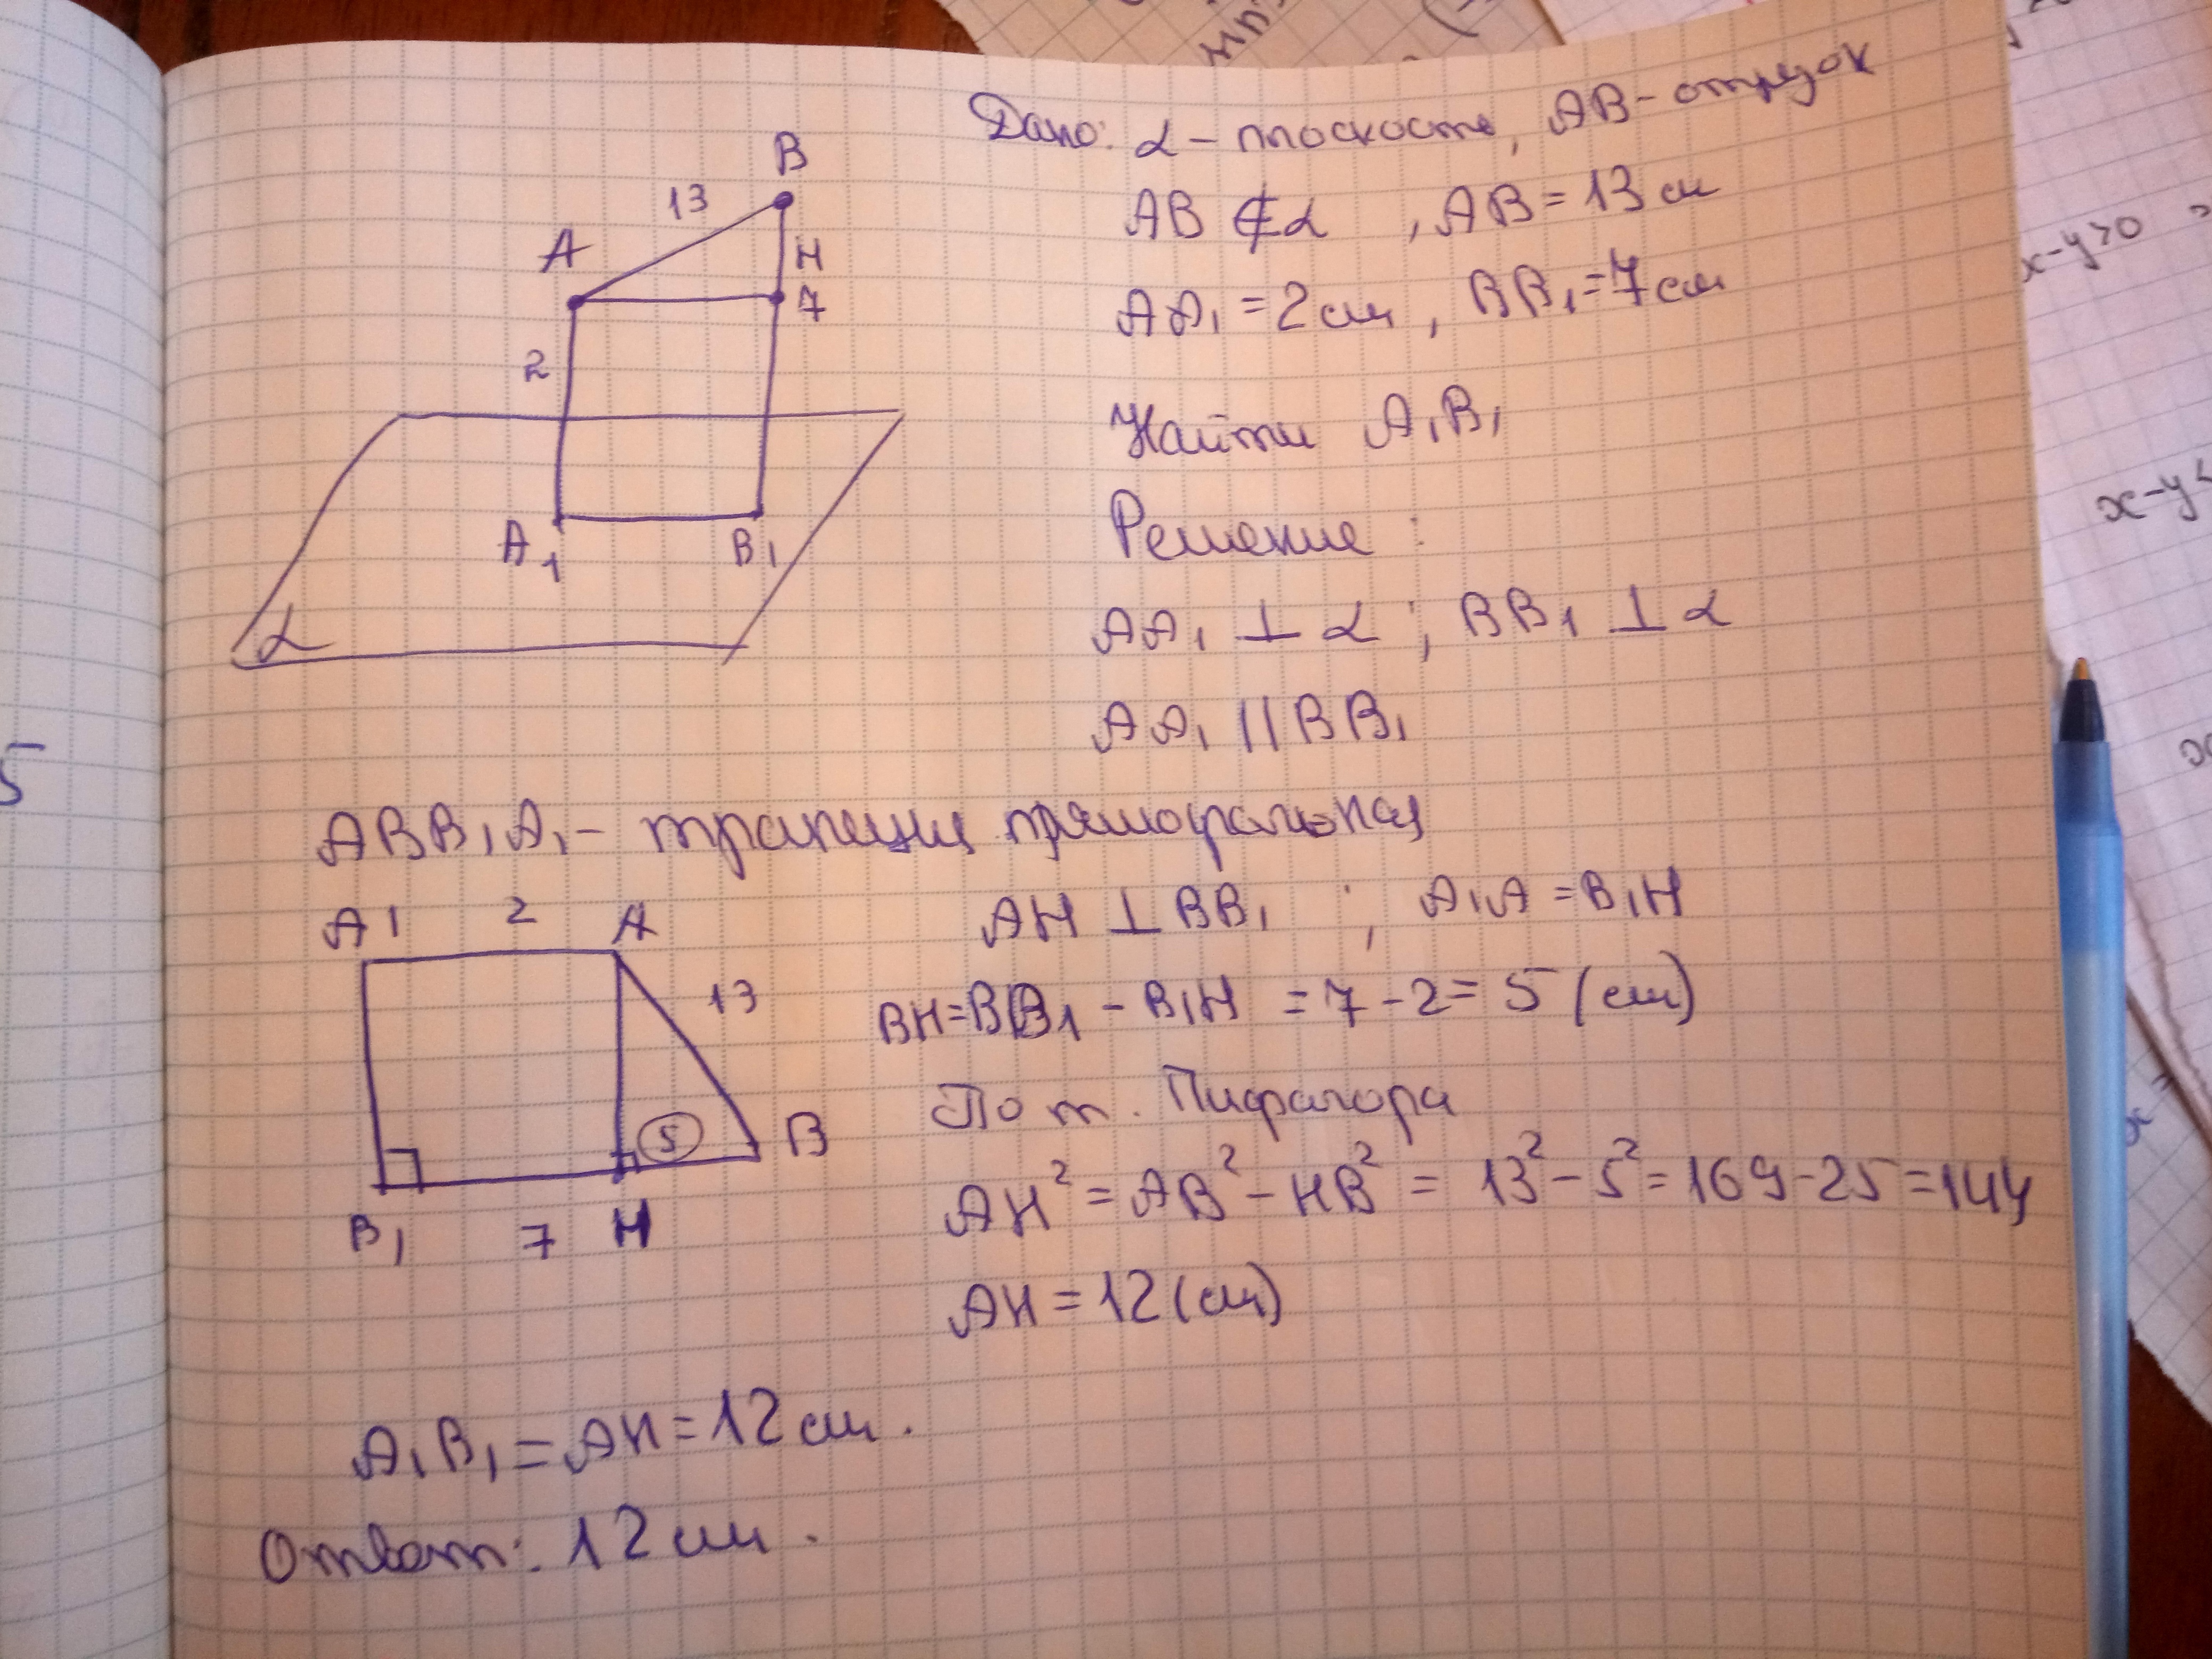 Дано: α – плоскость, AB – отрезок
AB ∉ α , AB = 13 см
AA₁ = 2 см, BB₁ = 7 см
Найти A₁B₁
Решение :
AA₁ ⊥ α ; BB₁ ⊥ α
AA₁ || BB₁
B
13
A
H
7
2
A₁
B₁
α
ABB₁A₁ – трапеция прямоугольная
A₁ 2 A
13
5
B
B₁ 7 H
AH ⊥ BB₁ ; A₁A = B₁H
BH = BB₁ – B₁H = 7 – 2 = 5 (см)
По т. Пифагора
AH² = AB² – HB² = 13² – 5² = 169 – 25 = 144
AH = 12 (см)
A₁B₁ = AH = 12 см.
Ответ: 12 см.
5
x–y>0
x–y<